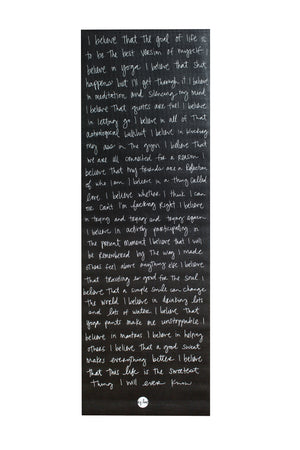 I believe that the goal of life is
to be the best version of myself I
believe in yoga I believe that shit
happens but I'll get through it I believe
in meditation and silencing my mind
I believe that quotes are fuel I believe
in letting go I believe in all of that
astrological bullshit I believe in
my ass in the gym I believe that
we are all connected for a reason I
believe that my friends are a reflection
of who I am I believe in a thing called
love I believe whether I think I can
or can't I'm fucking right I believe
in trying and trying and trying again
I believe in actively participating in
the present moment I believe that I will
be remembered by the way I made
others feel above anything else I believe
that traveling is good for the soul I
believe that a simple smile can change
the world I believe in drinking lots
and lots of water I believe that
yoga pants make me unstoppable I
believe in mantras I believe in helping
others I believe that a good sweat
makes everything better I believe
that this life is the sweetest
thing I will ever know